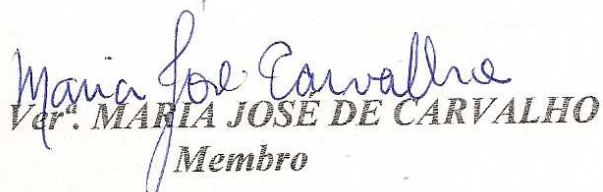 Maria José Carvalho
Verª. MARIA JOSÉ DE CARVALHO
Membro